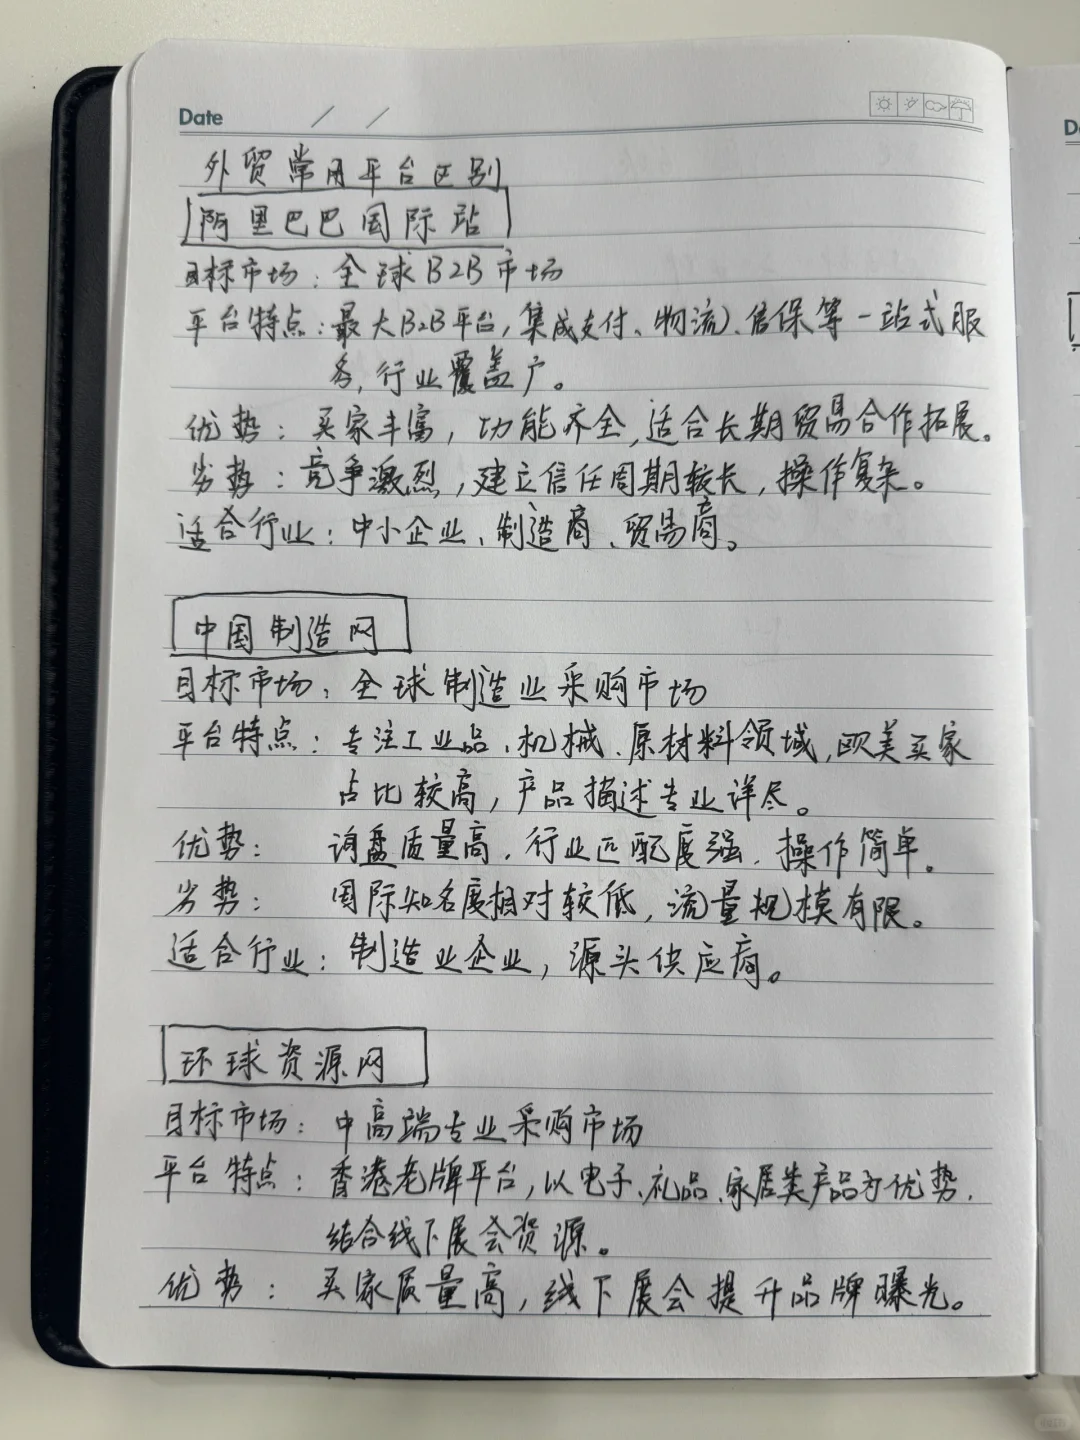 Date / /
外贸常用平台区别
阿里巴巴国际站
目标市场：全球B2B市场
平台特点：最大B2B平台，集成支付、物流、信保等一站式服
务，行业覆盖广。
优势：买家丰富，功能齐全，适合长期贸易合作拓展。
劣势：竞争激烈，建立信任周期较长，操作复杂。
适合行业：中小企业、制造商、贸易商。
中国制造网
目标市场：全球制造业采购市场
平台特点：专注工业品、机械、原材料领域，欧美买家
占比较高，产品描述专业详尽。
优势：询盘质量高，行业匹配度强，操作简单。
劣势：国际知名度相对较低，流量规模有限。
适合行业：制造业企业，源头供应商。
环球资源网
目标市场：中高端专业采购市场
平台特点：香港老牌平台，以电子、礼品、家居类产品为优势，
结合线下展会资源。
优势：买家质量高，线下展会提升品牌曝光。